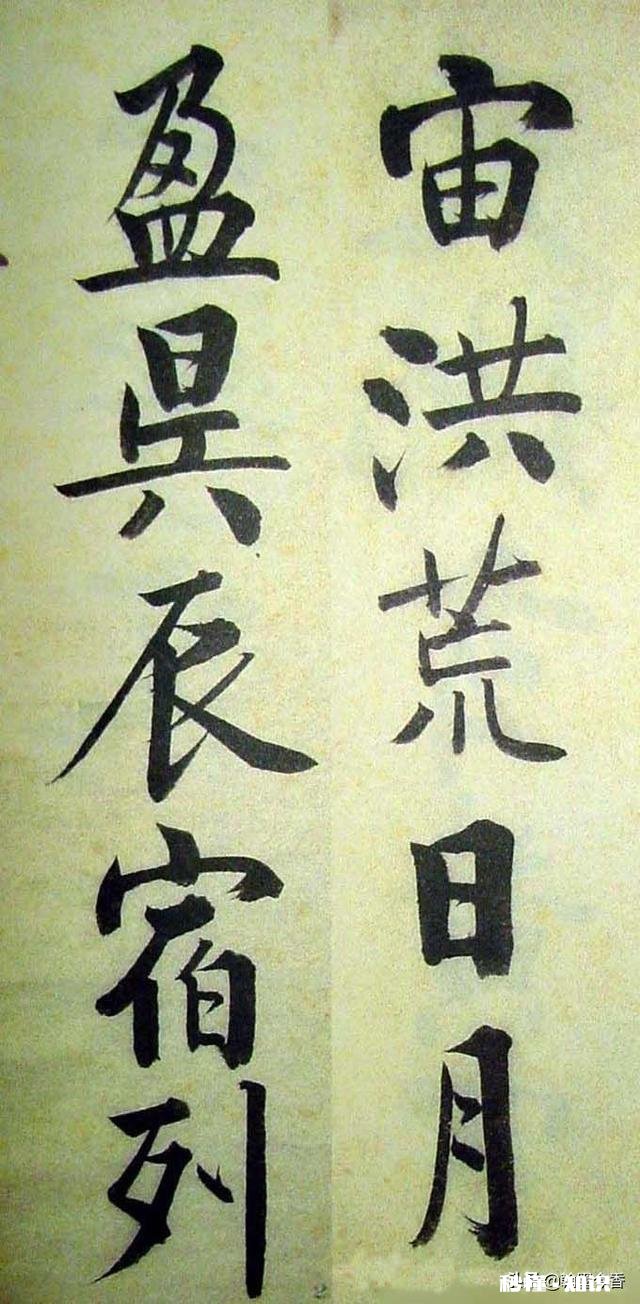 宙洪荒日月
盈昃辰宿列